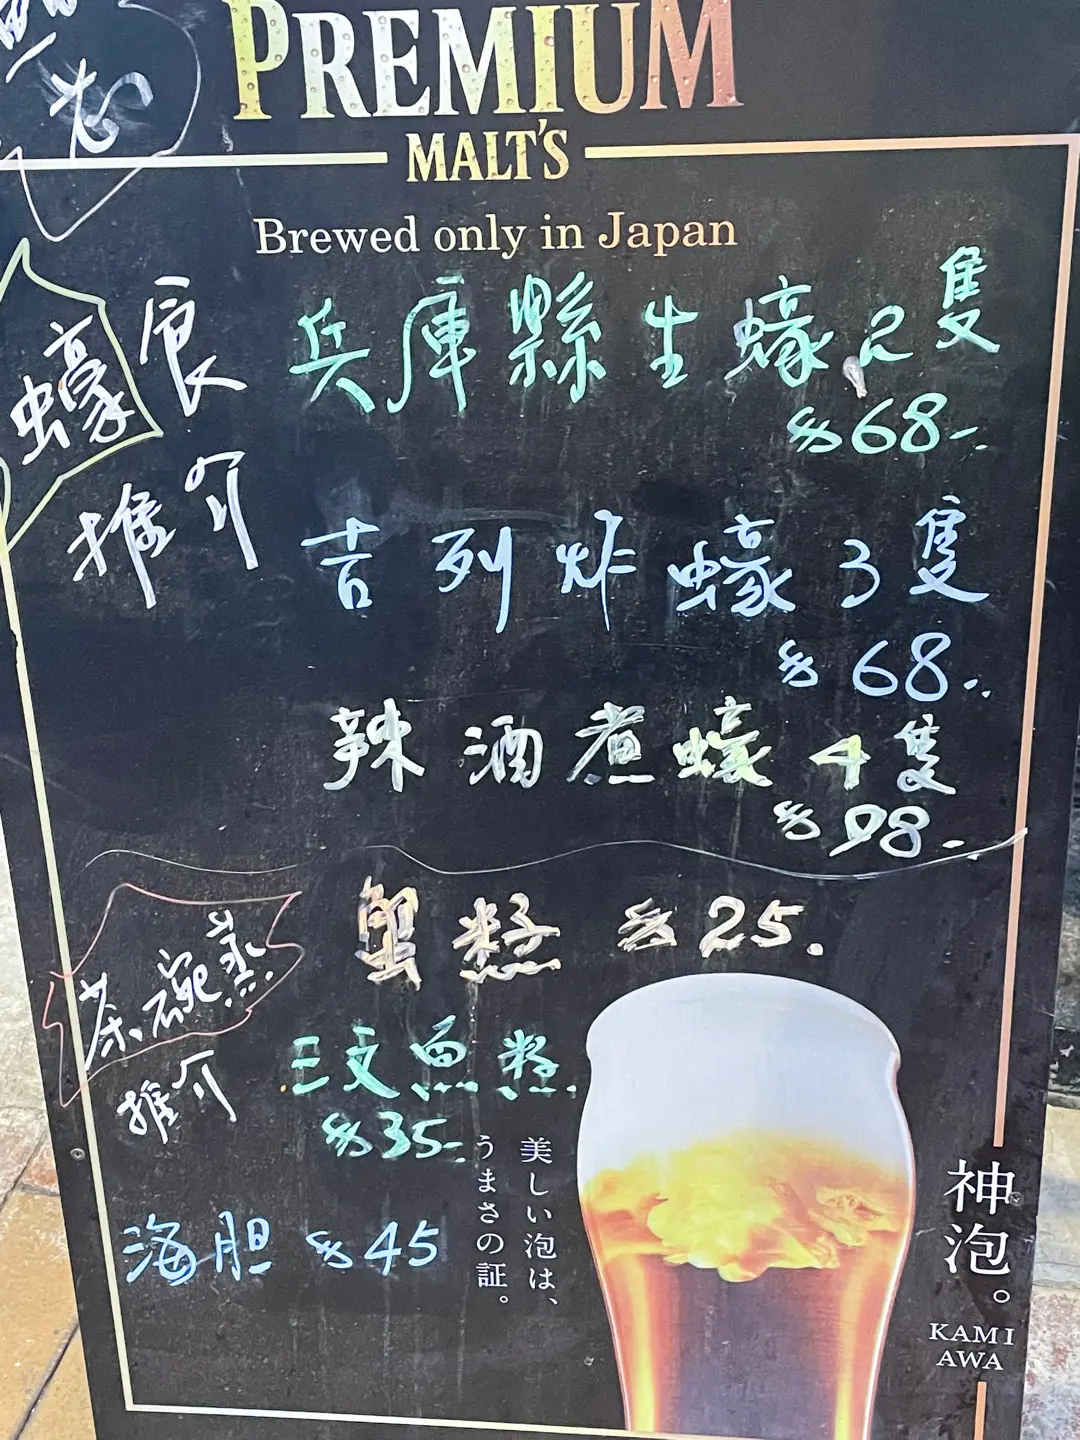 PREMIUM
MALT'S
Brewed only in Japan
蠔
推介
兵庫縣生蠔2隻
$68-
吉列炸蠔3隻
$68-
辣酒煮蠔4隻
$98-
茶碗蒸
推介
蟹籽 $25.
三文魚籽
$35-
海胆 $45
美しい泡は、
うまさの証。
神泡。
KAMI
AWA